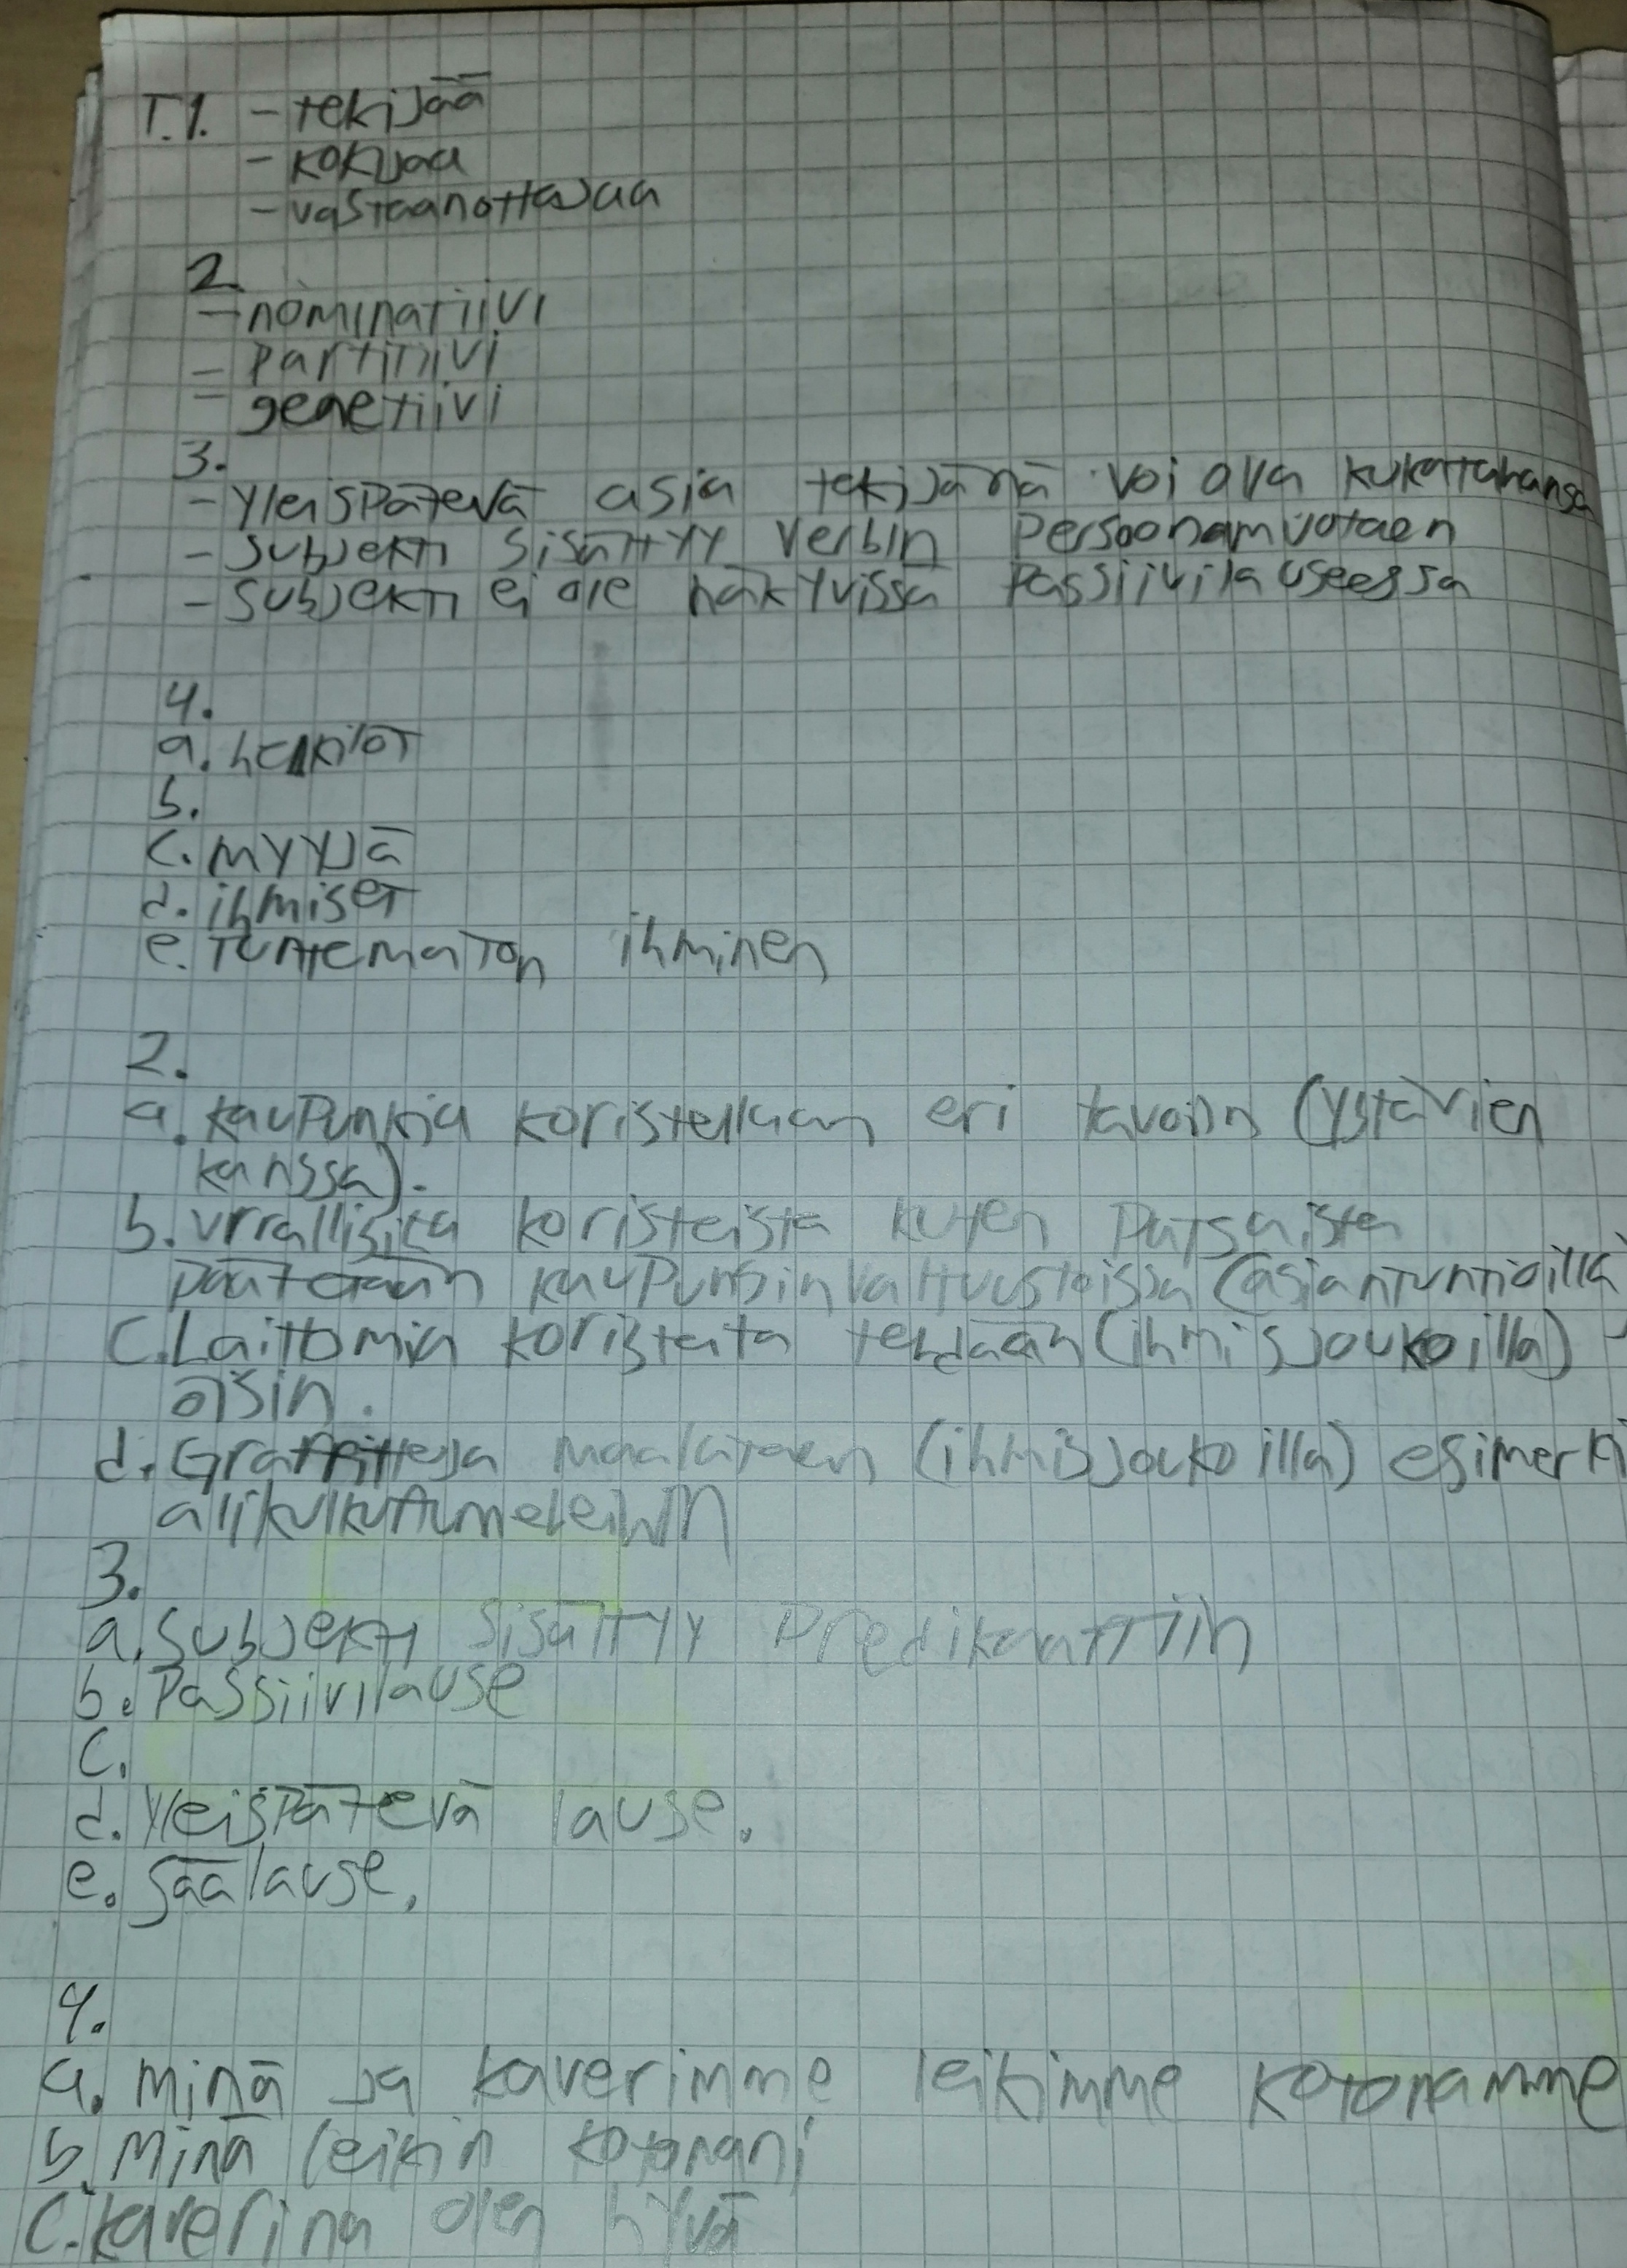 T.1. - tekijää
- kokijaa
- vastaanottajaa
2.
- nominatiivi
- partitiivi
- genetiivi
3.
- yleispätevä asia tekijänä voi olla kukatahansa
- subjekti sisältyy verbin persoonamuotoen
- subjekti ei ole näkyvissä passiivilauseessa
4.
a. henkilöt
b.
c. myyjä
d. ihmiset
e. tuntematon ihminen
2.
a. kaupunkia koristellaan eri tavoin (ystävien
kanssa).
b. virallisita koristeista kuten patsaista
päätetään kaupunginvaltuustoissa (asiantuntioilla
c. Laittomia koristeita tehdään (ihmisjoukoilla)
öisin.
d. Graffitteja maalataan (ihmisjoukoilla) esimerki
alikulkutunneleihin
3.
a. subjekti sisältyy predikaattiin
b. passiivilause
c.
d. yleispätevä lause.
e. säälause.
4.
a. minä ja kaverimme leikimme kotonamme
b. Minä leikin kotonani
c. kaverina olen hyvä